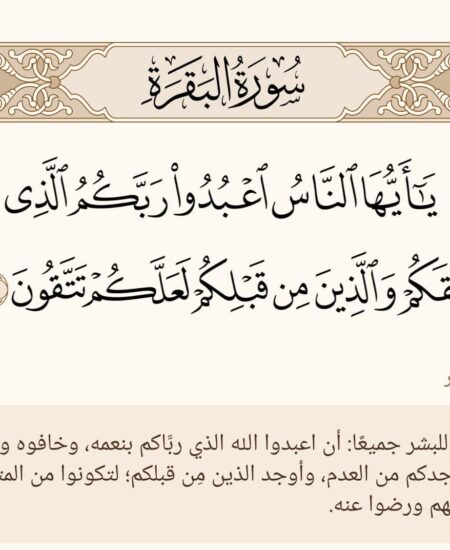 سُورَةُ البَقَرَةِ
يَٰٓأَيُّهَا ٱلنَّاسُ ٱعۡبُدُواْ رَبَّكُمُ ٱلَّذِي
قَكُمۡ وَٱلَّذِينَ مِن قَبۡلِكُمۡ لَعَلَّكُمۡ تَتَّقُونَ
للبشر جميعًا: أن اعبدوا الله الذي ربَّاكم بنعمه، وخافوه و
جدكم من العدم، وأوجد الذين مِن قبلكم؛ لتكونوا من المت
هم ورضوا عنه.